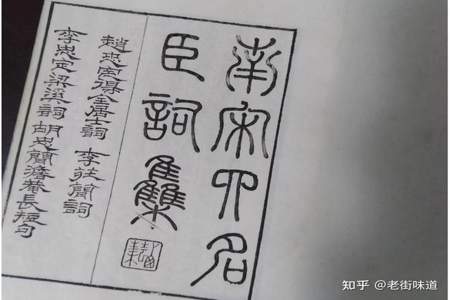 南宋四名
臣詞集
趙忠簡得全居士詞 李莊簡詞
李忠定梁溪詞 胡忠簡澹菴長短句
知乎 @老街味道